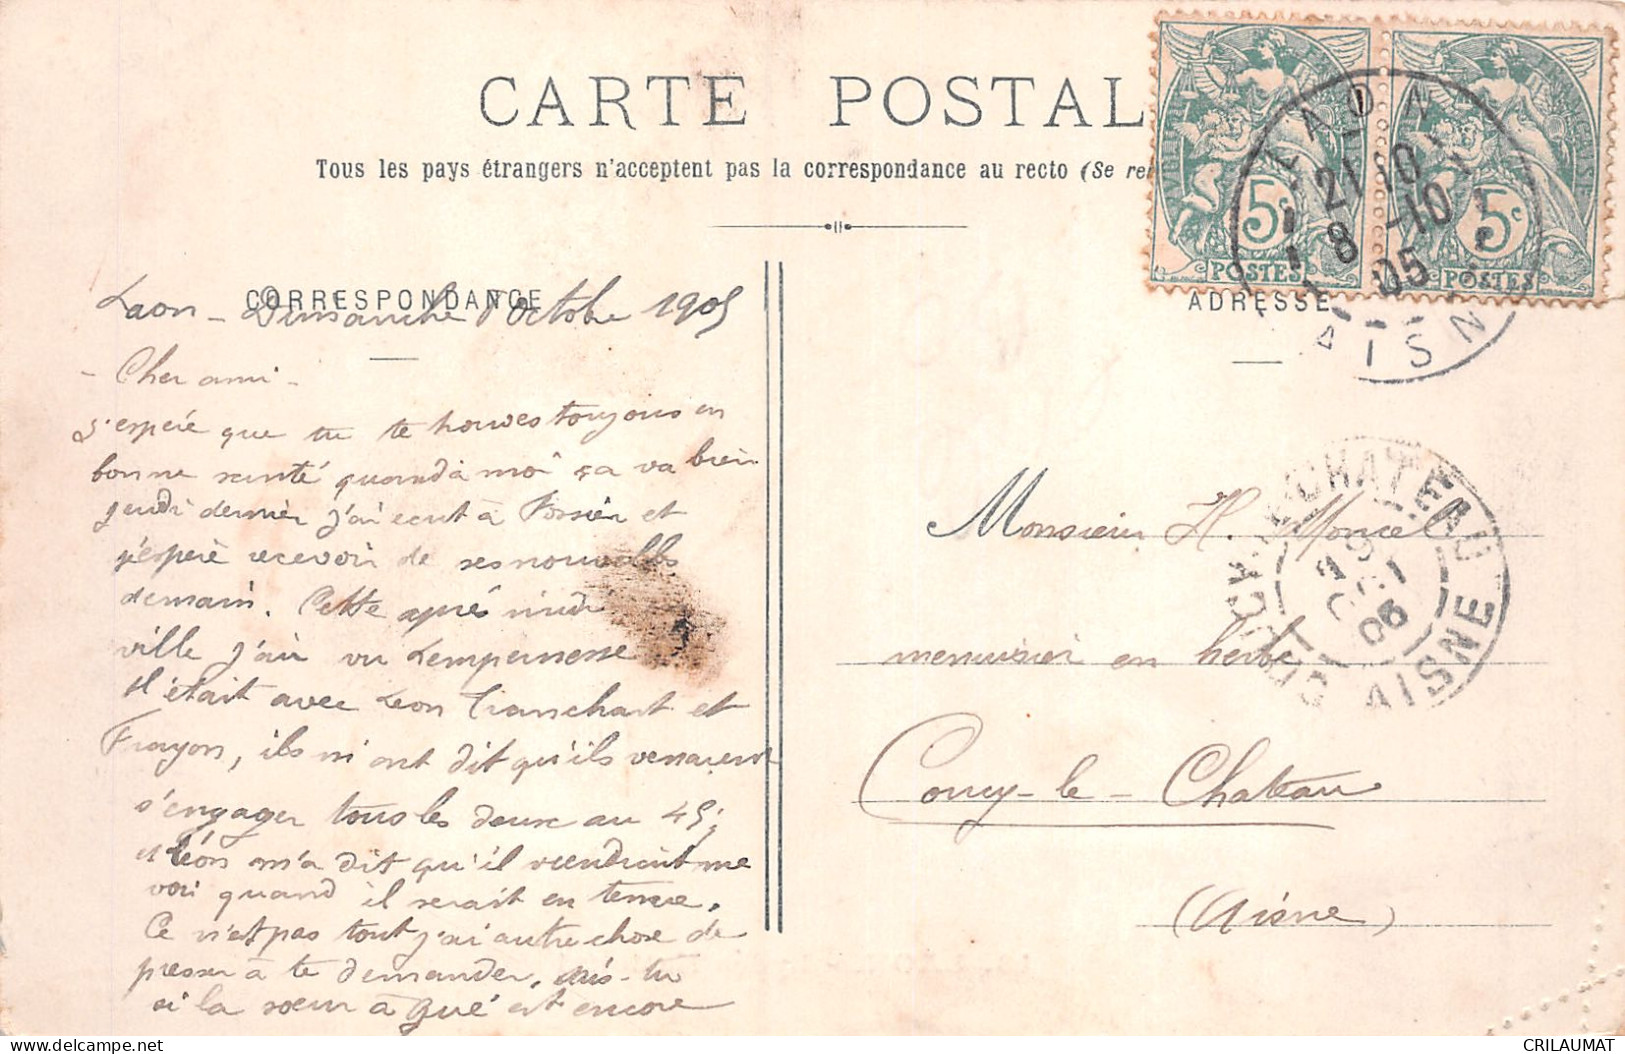 CARTE POSTAL
Tous les pays étrangers n'acceptent pas la correspondance au recto (Se re
CORRESPONDANCE
ADRESSE
5c
POSTES
5c
POSTES
LAON
21 10
8 -10
05
AISN
Laon - Dimanche 8 Octobre 1905
- Cher ami -
J'espère que tu te trouves toujours en
bonne santé quand à moi ça va bien
jeudi dernier j'ai ecrit à Possien et
j'espère recevoir de ses nouvelles
demain. Cette après midi
ville j'ai vu Lempernesse
il était avec Leon Tranchart et
Frayon, ils m'ont dit qu'ils venaient
s'engager tous les deux au 45;
et Léon m'a dit qu'il viendrait me
voir quand il serait en tenue.
Ce n'est pas tout j'ai autre chose de
presser à te demander, dis-tu
si la sœur à Gué est encore
COUCY-LE-CHATEAU
OCT
05
AISNE
Monsieur H. Monce
menuisier en herbe
Coucy-le-Chateau
(Aisne)
CRILAUMAT